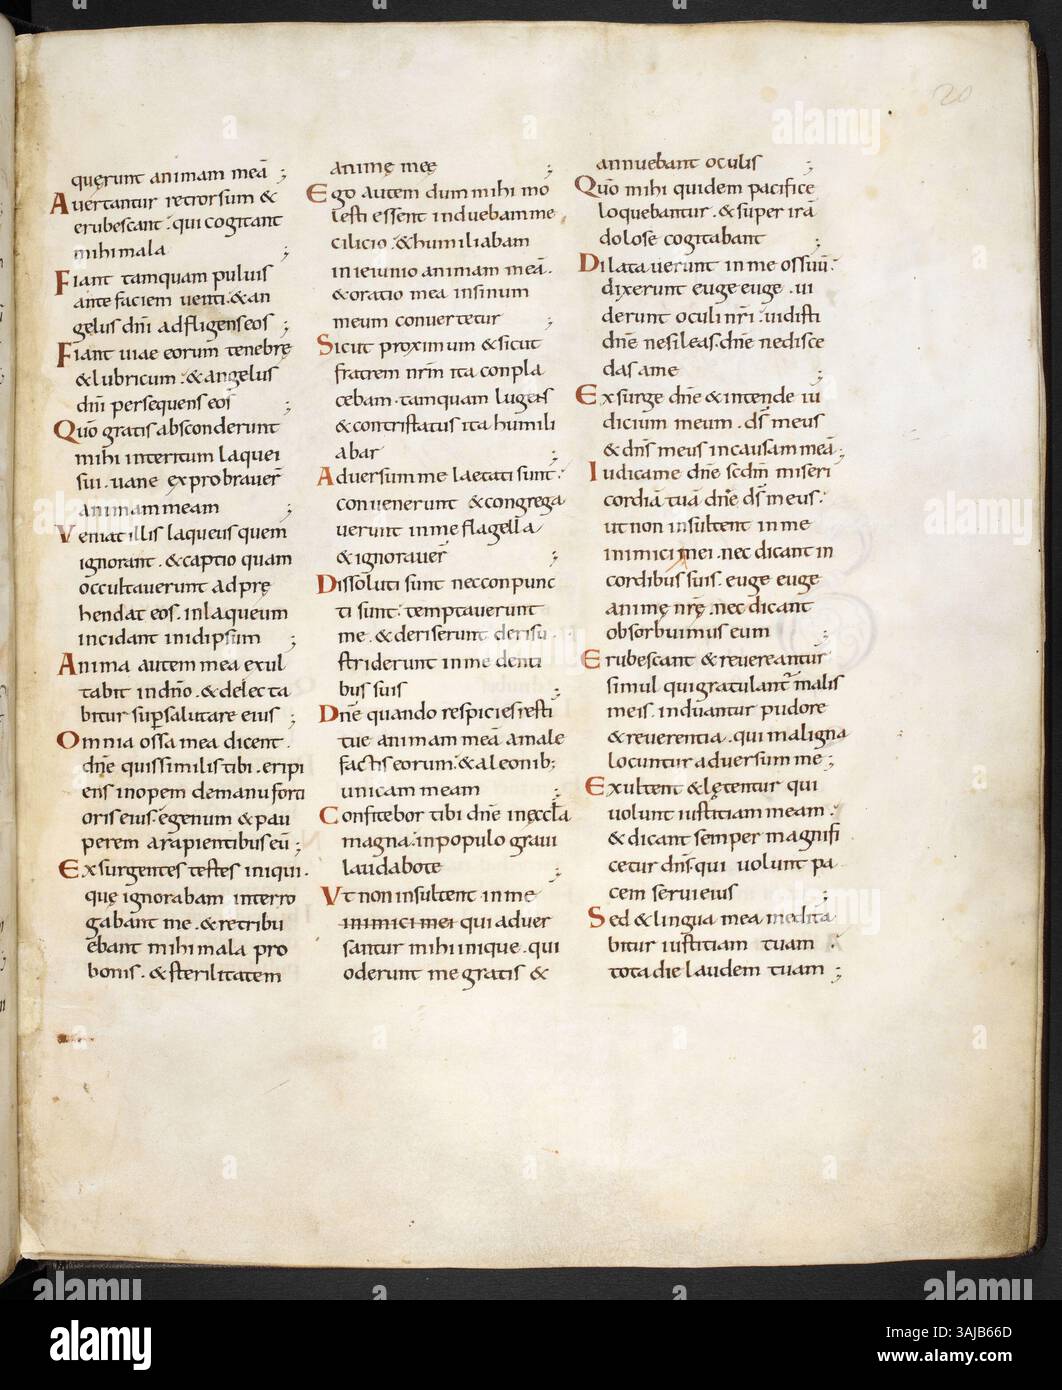 20
quęrunt animam meā ;
Auertantur retrorsum &
erubescant . qui cogitant
mihi mala ;
Fiant tamquam puluis
ante faciem uenti . & an
gelus dñi adfligens eos ;
Fiant uiae eorum tenebrę
& lubricum . & angelus
dñi persequens eos ;
Quō gratis absconderunt
mihi interitum laquei
sui . uane exprobrauer̄
animam meam ;
Veniat illis laqueus quem
ignorant . & captio quam
occultauerunt adpre
hendat eos . in laqueum
incidant in idipsum ;
Anima autem mea exul
tabit in dño . & delecta
bitur sup salutare eius ;
Omnia ossa mea dicent .
dñe quis similis tibi . eripi
ens inopem de manu forti
oris eius . egenum & pau
perem a rapientibus eū ;
Exsurgentes testes iniqui .
quę ignorabam interro
gabant me . & retribu
ebant mihi mala pro
bonis . & sterilitatem
animę meę ;
Ego autem dum mihi mo
lesti essent induebam me
cilicio . & humiliabam
in ieiunio animam meā .
& oratio mea in sinum
meum conuertetur ;
Sicut proximum & sicut
fratrem nrm ita conpla
cebam . tamquam lugens
& contristatus ita humili
abar ;
Aduersum me laetati sunt .
conuenerunt & congrega
uerunt in me flagella
& ignorauer̄ ;
Dissoluti sunt nec conpunc
ti sunt . temptauerunt
me . & deriserunt derisu .
striderunt in me denti
bus suis ;
Dñe quando respicies resti
tue animam meā a male
factis eorum . & a leonib;
unicam meam ;
Confitebor tibi dñe in ęccła
magna . in populo graui
laudabo te ;
Vt non insultent in me
inimici mei qui aduer
santur mihi inique . qui
oderunt me gratis &
annuebant oculis ;
Quō mihi quidem pacifice
loquebantur . & super irā
dolose cogitabant ;
Dilatauerunt in me os suū .
dixerunt euge euge . ui
derunt oculi nr̄i . uidisti
dñe ne sileas . dñe ne disce
das a me ;
Exsurge dñe & intende iu
dicium meum . ds̄ meus
& dñs meus in causam meā ;
Iudica me dñe scdm̄ miseri
cordiā tuā dñe ds̄ meus .
ut non insultent in me
inimici mei . nec dicant in
cordibus suis . euge euge
animę nrę . nec dicant
obsorbuimus eum ;
Erubescant & reuereantur
simul qui gratulant̄ malis
meis . induantur pudore
& reuerentia . qui maligna
locuntur aduersum me ;
Exultent & lętentur qui
uolunt iustitiam meam .
& dicant semper magnifi
cetur dñs . qui uolunt pa
cem serui eius ;
Sed & lingua mea medita
bitur iustitiam tuam .
tota die laudem tuam ;
alamy
Image ID: 2AJB66D
www.alamy.com